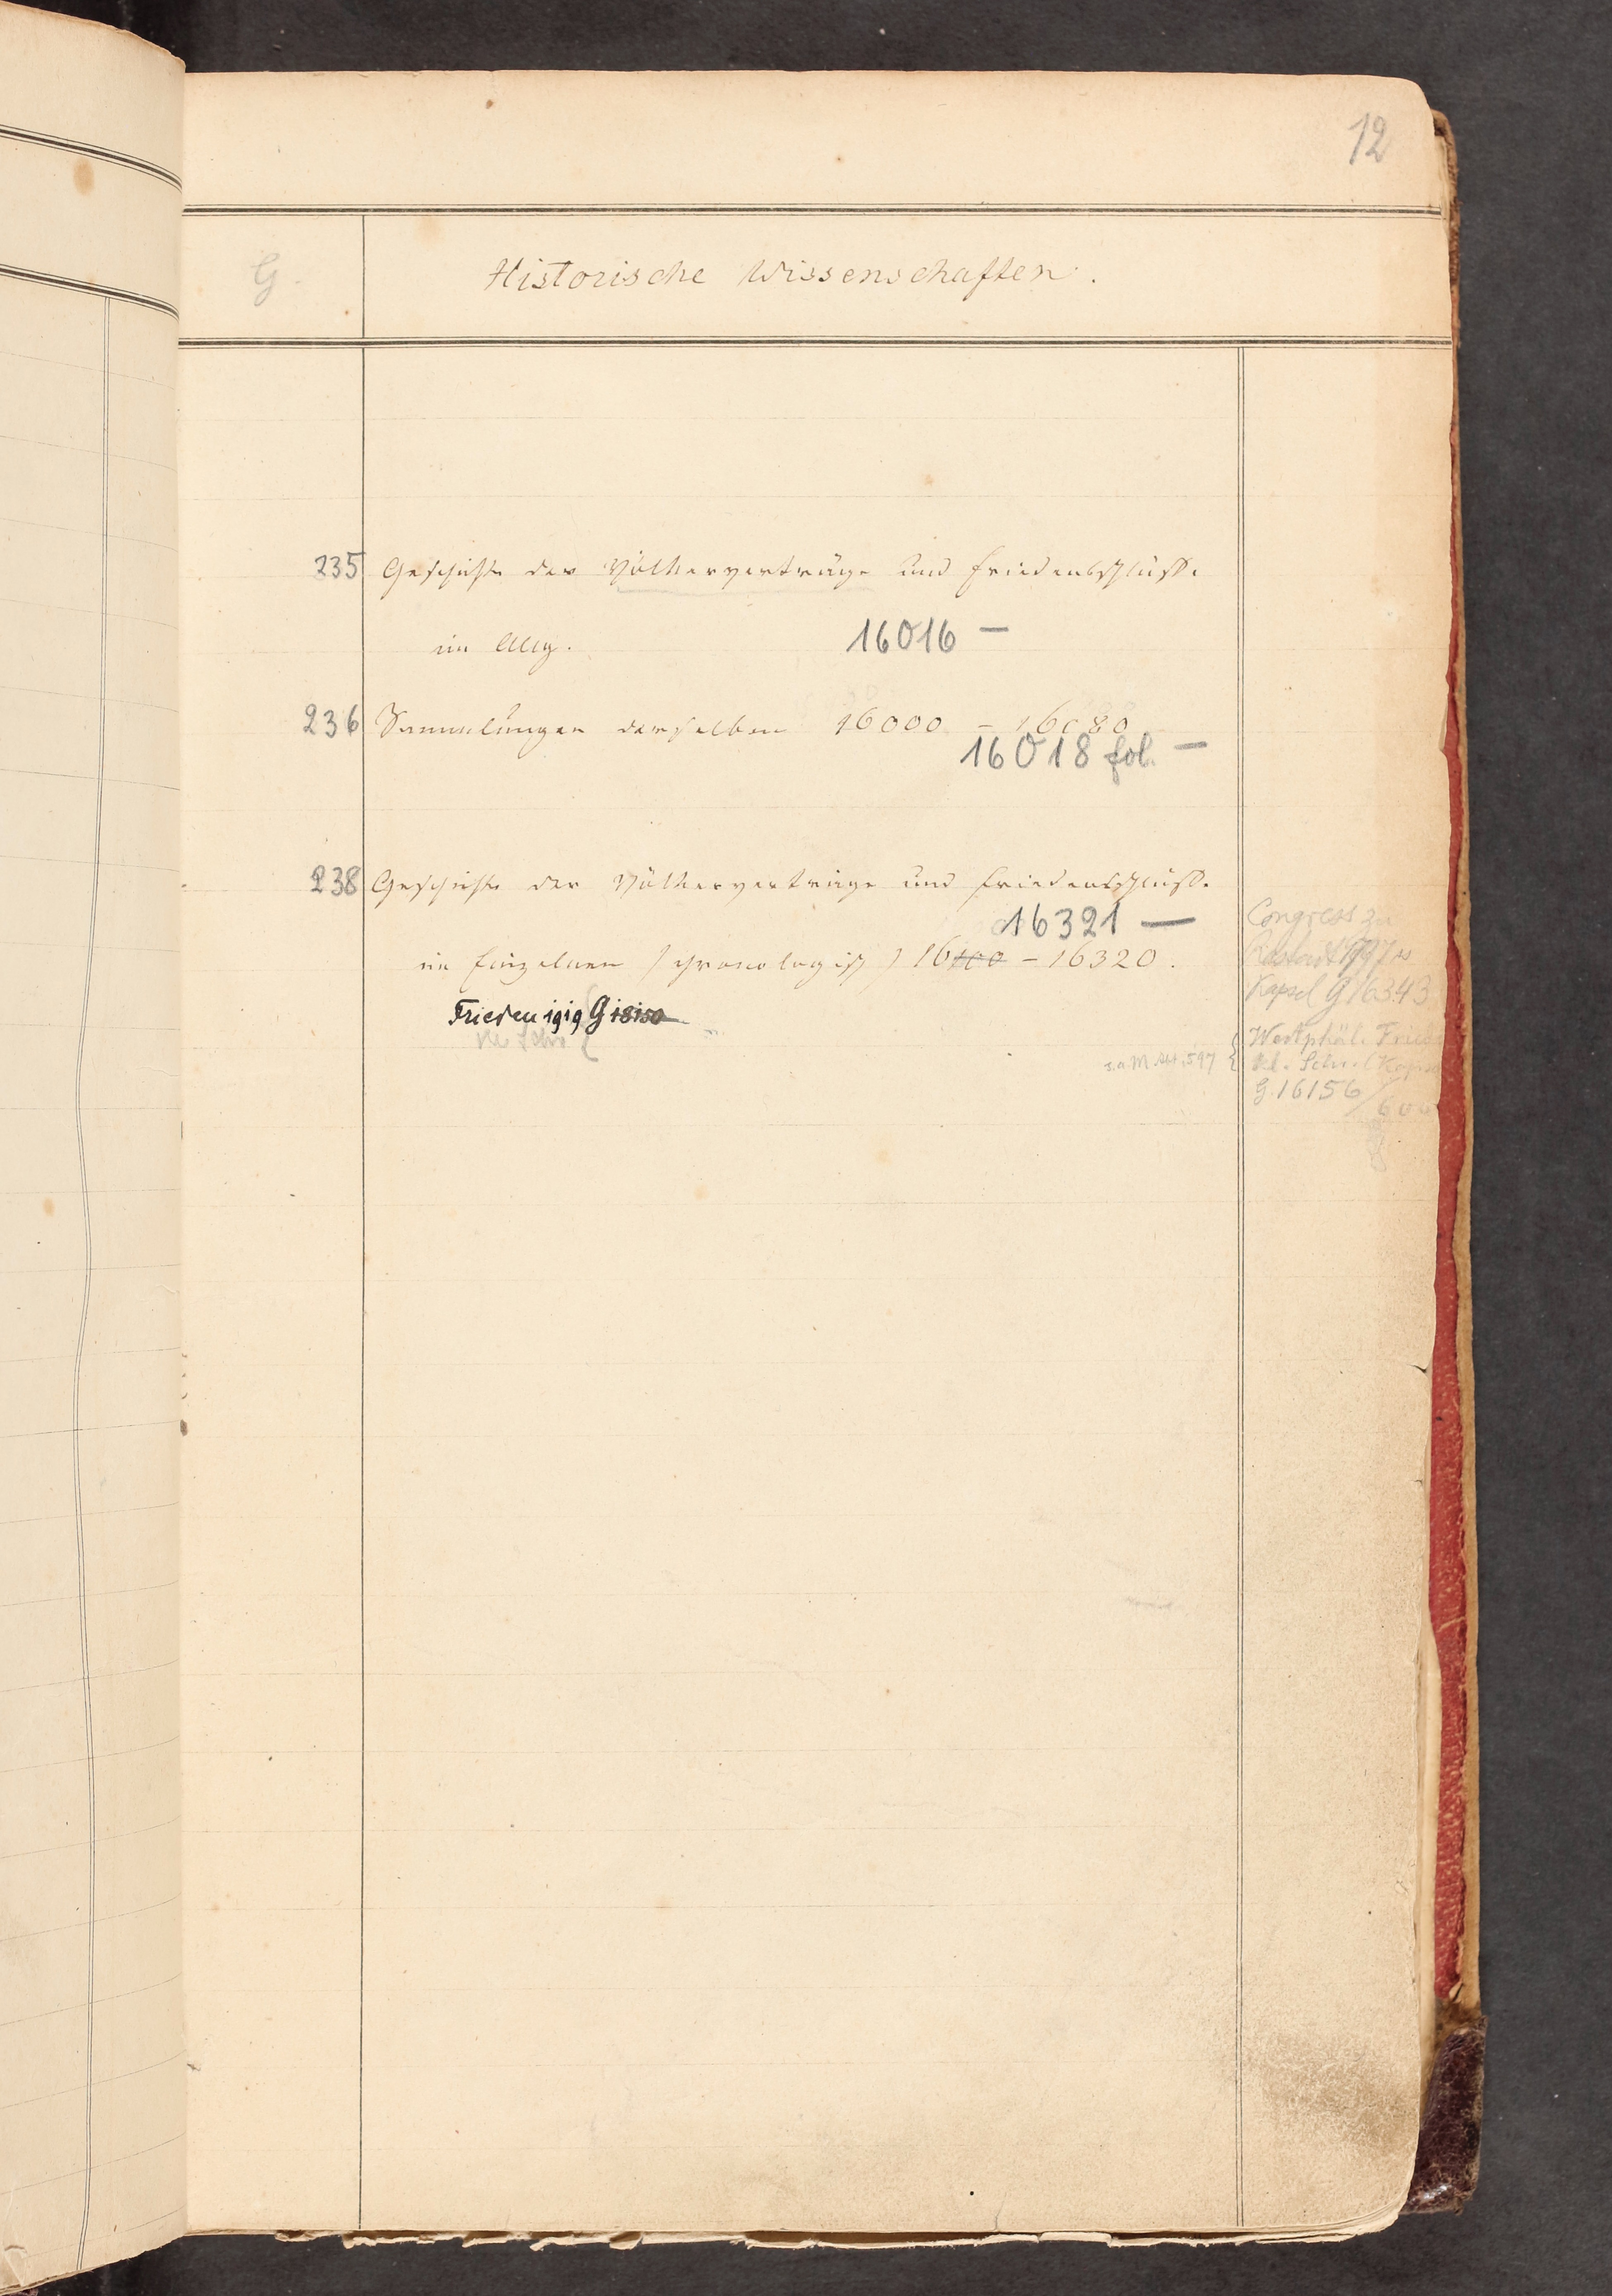 12
G. Historische Wissenschaften.
235 Geschichte der Völkerverträge und Friedensschlüsse
im Allg. 16016 —
236 Sammlungen derselben 16000 – 16080
16018 fol. —
238 Geschichte der Völkerverträge und Friedensschlüsse
16321 —
im Einzelnen (chronologisch) 16100 – 16320.
Frieden 1919 G 18150
Congress zu
Rastadt 1797
Kapsel G 16343
Westphäl. Friede
s. a. M. 597 { Kl. Schr. Kapsel
G 16156/600